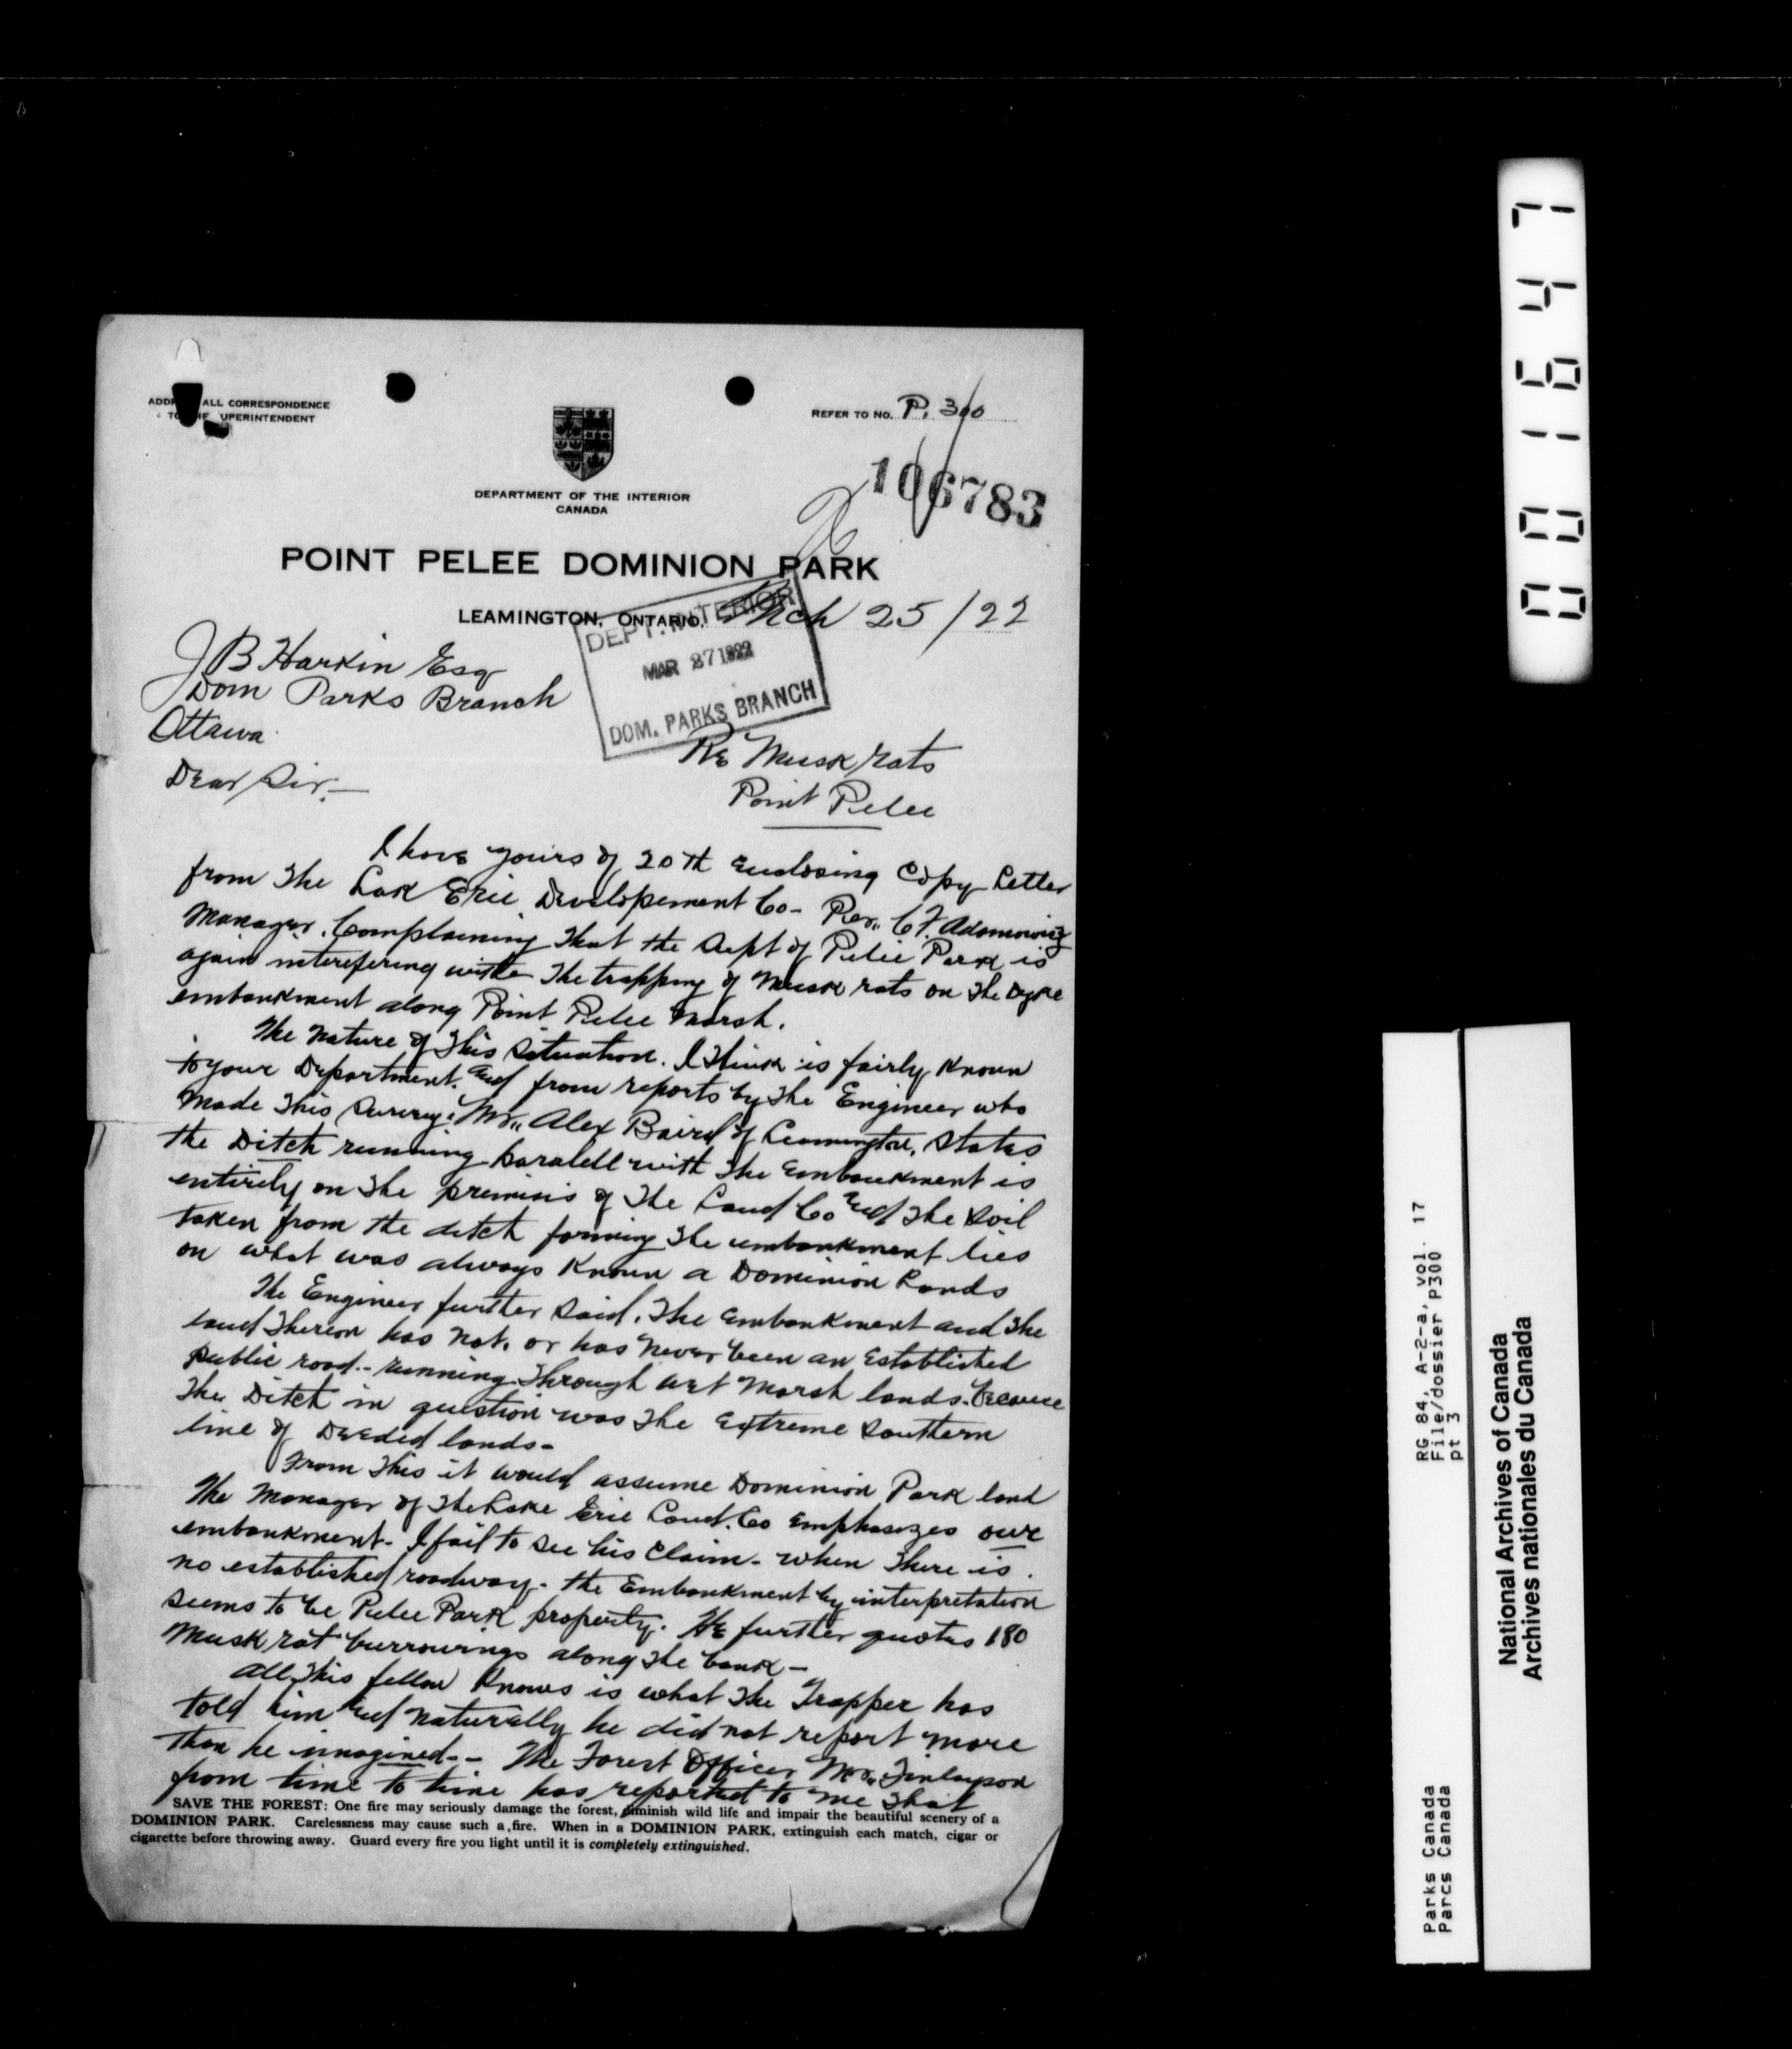 ADDRESS ALL CORRESPONDENCE
TO THE SUPERINTENDENT
REFER TO NO. P. 300
106783
DEPARTMENT OF THE INTERIOR
CANADA
POINT PELEE DOMINION PARK
LEAMINGTON, ONTARIO, Mch 25/22
DEPT. INTERIOR
MAR 27 1922
DOM. PARKS BRANCH
J B Harkin Esq
Dom Parks Branch
Ottawa
Re Musk rats
Point Pelee
Dear Sir,—
I have yours of 20th enclosing Copy Letter
from the Lak Erie Developement Co- Per,, C.F. Adamowicz
Manager. Complaining that the Dept of Pelee Park is
again interefering with the trapping of Musk rats on the Dyke
embankment along Point Pelee Marsh.
The Nature of this situation. I think is fairly known
to your Department. and from reports by the Engineer who
made this survey: Mr,, Alex Baird of Leamington, states
the Ditch running paralell with the Embankment is
entirely on the premisis of the Land Co and the soil
taken from the ditch forming the embankment lies
on what was always known a Dominion Lands
The Engineer further said. The embankment and the
land thereon has not. or has never been an Established
public road.- running through wet Marsh lands. because
The Ditch in question was the Extreme Southern
line of Deeded lands-
From this it would assume Dominion Park land
The Manager of the Lake Erie Land. Co emphasizes our
embankment- I fail to see his claim- when there is.
no established roadway- the Embankment by interpretation
seems to be Pelee Park property. He further quotes 180
Musk rat burrowings along the bank-
All this fellow knows is what the Trapper has
told him and naturally he did not report more
than he imagined-- The Forest Officer Mr,, Finlayson
from time to time has reported to me that
SAVE THE FOREST: One fire may seriously damage the forest, diminish wild life and impair the beautiful scenery of a
DOMINION PARK. Carelessness may cause such a fire. When in a DOMINION PARK, extinguish each match, cigar or
cigarette before throwing away. Guard every fire you light until it is completely extinguished.
001647
RG 84, A-2-a, vol. 17
File/dossier P300
pt 3
Parks Canada
Parcs Canada
National Archives of Canada
Archives nationales du Canada